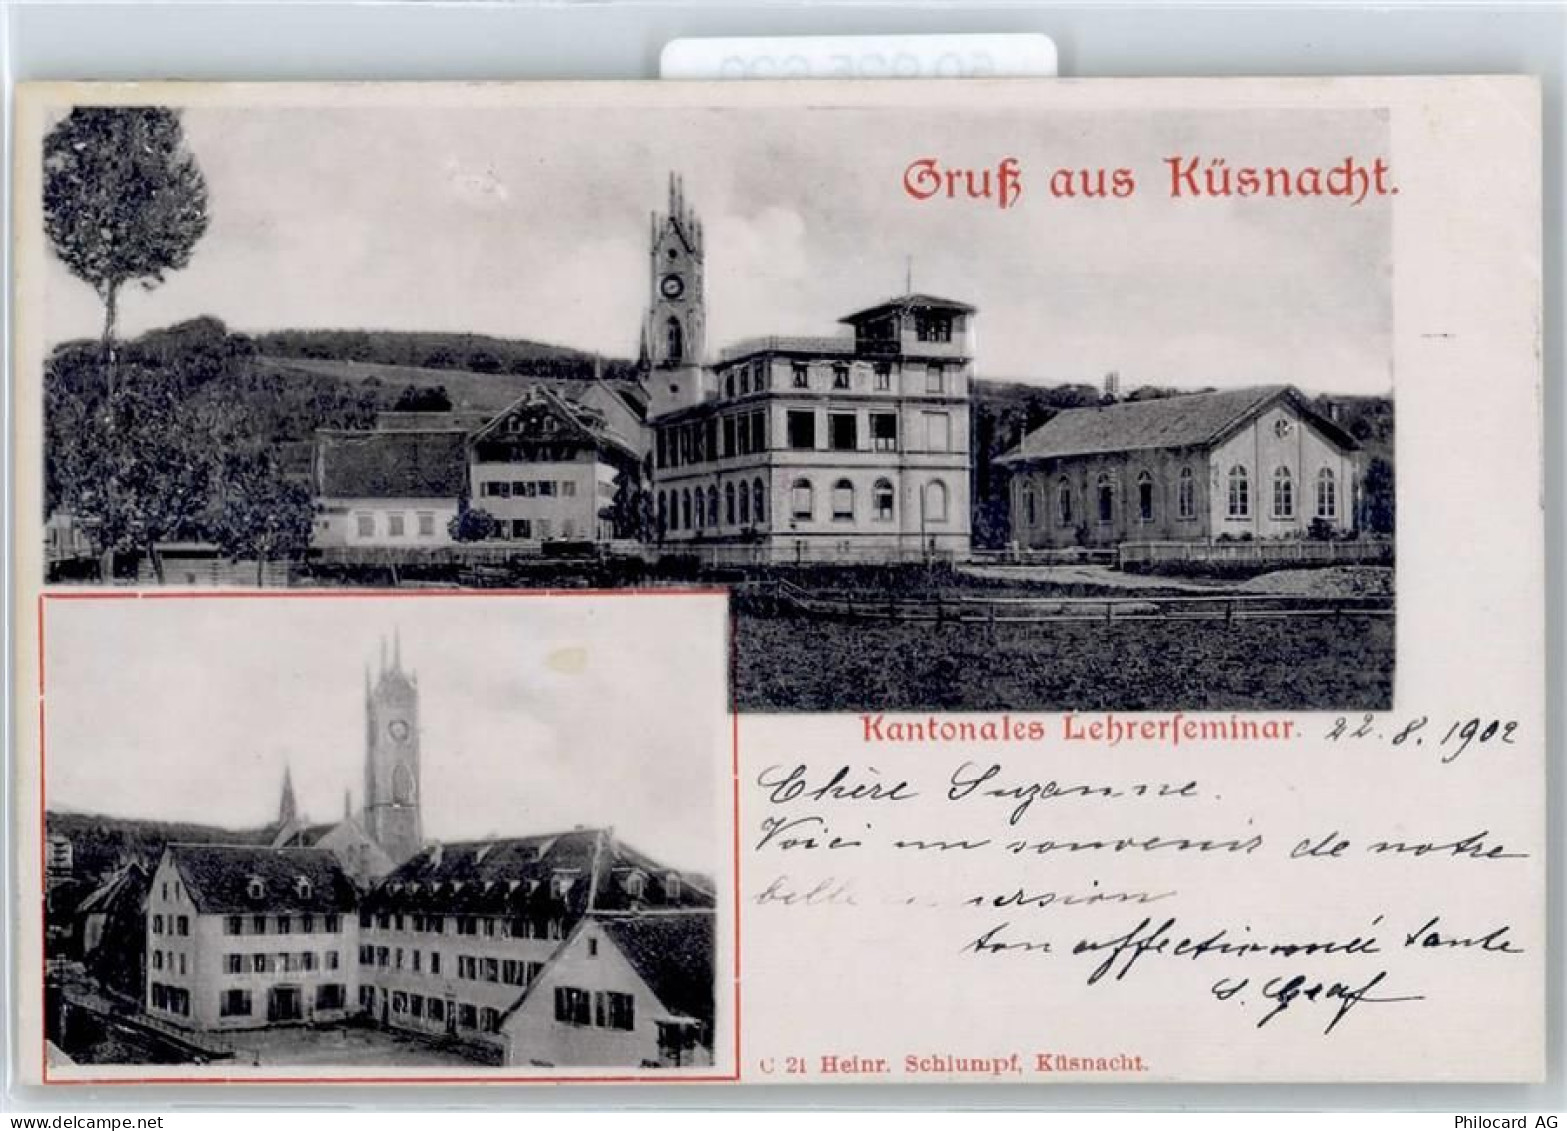 Gruß aus Küsnacht.
Kantonales Lehrerseminar. 22. 8. 1902
Chère Suzanne.
Voici un souvenir de notre
belle
ton affectionnée tante
S. Graf
C 21 Heinr. Schlumpf, Küsnacht.
delcampe.net
Philocard AG